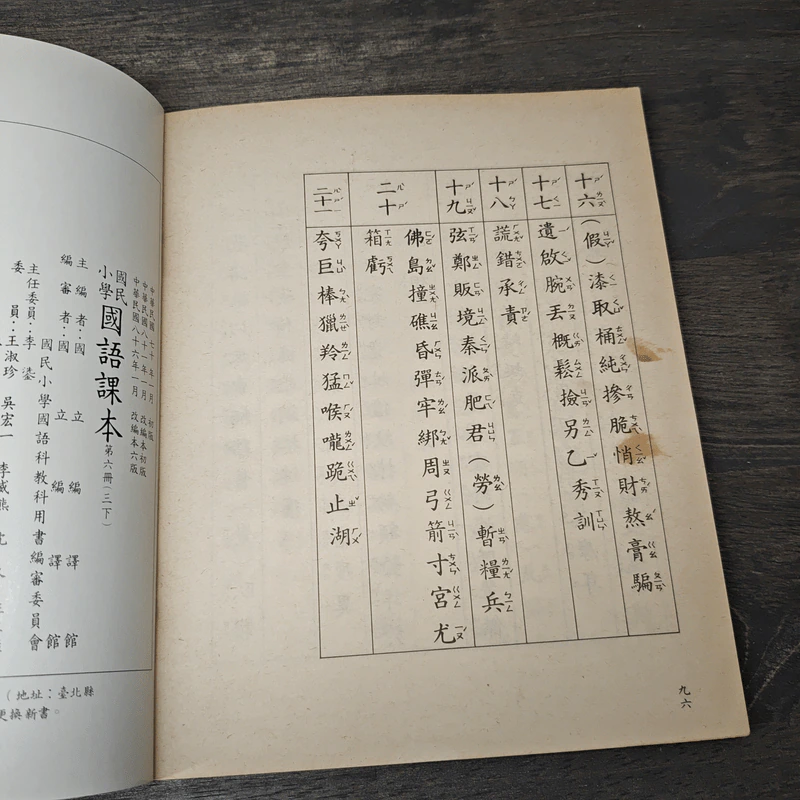 十六
（假）漆取桶純摻脆悄財熬膏騙
十七
遺啟腕丟概鬆撿另乙秀訓
十八
謊錯承責
十九
弦鄭販境秦派肥君（勞）暫糧兵
二十
佛島撞礁昏彈牢綁周弓箭寸宮尤
箱虧
二十一
夸巨棒獵羚猛喉嚨跪止湖
九六
中華民國七十年一月 初版
中華民國八十一年一月 改編本初版
中華民國八十六年一月 改編本六版
國民小學 國語課本 第六冊（三下）
主編者：國立編譯館
編審者：國立編譯館
國民小學國語科教科用書編審委員會
主任委員：李鍌
委員：王淑珍 吳宏一 李威熊
（地址：臺北縣
更換新書。